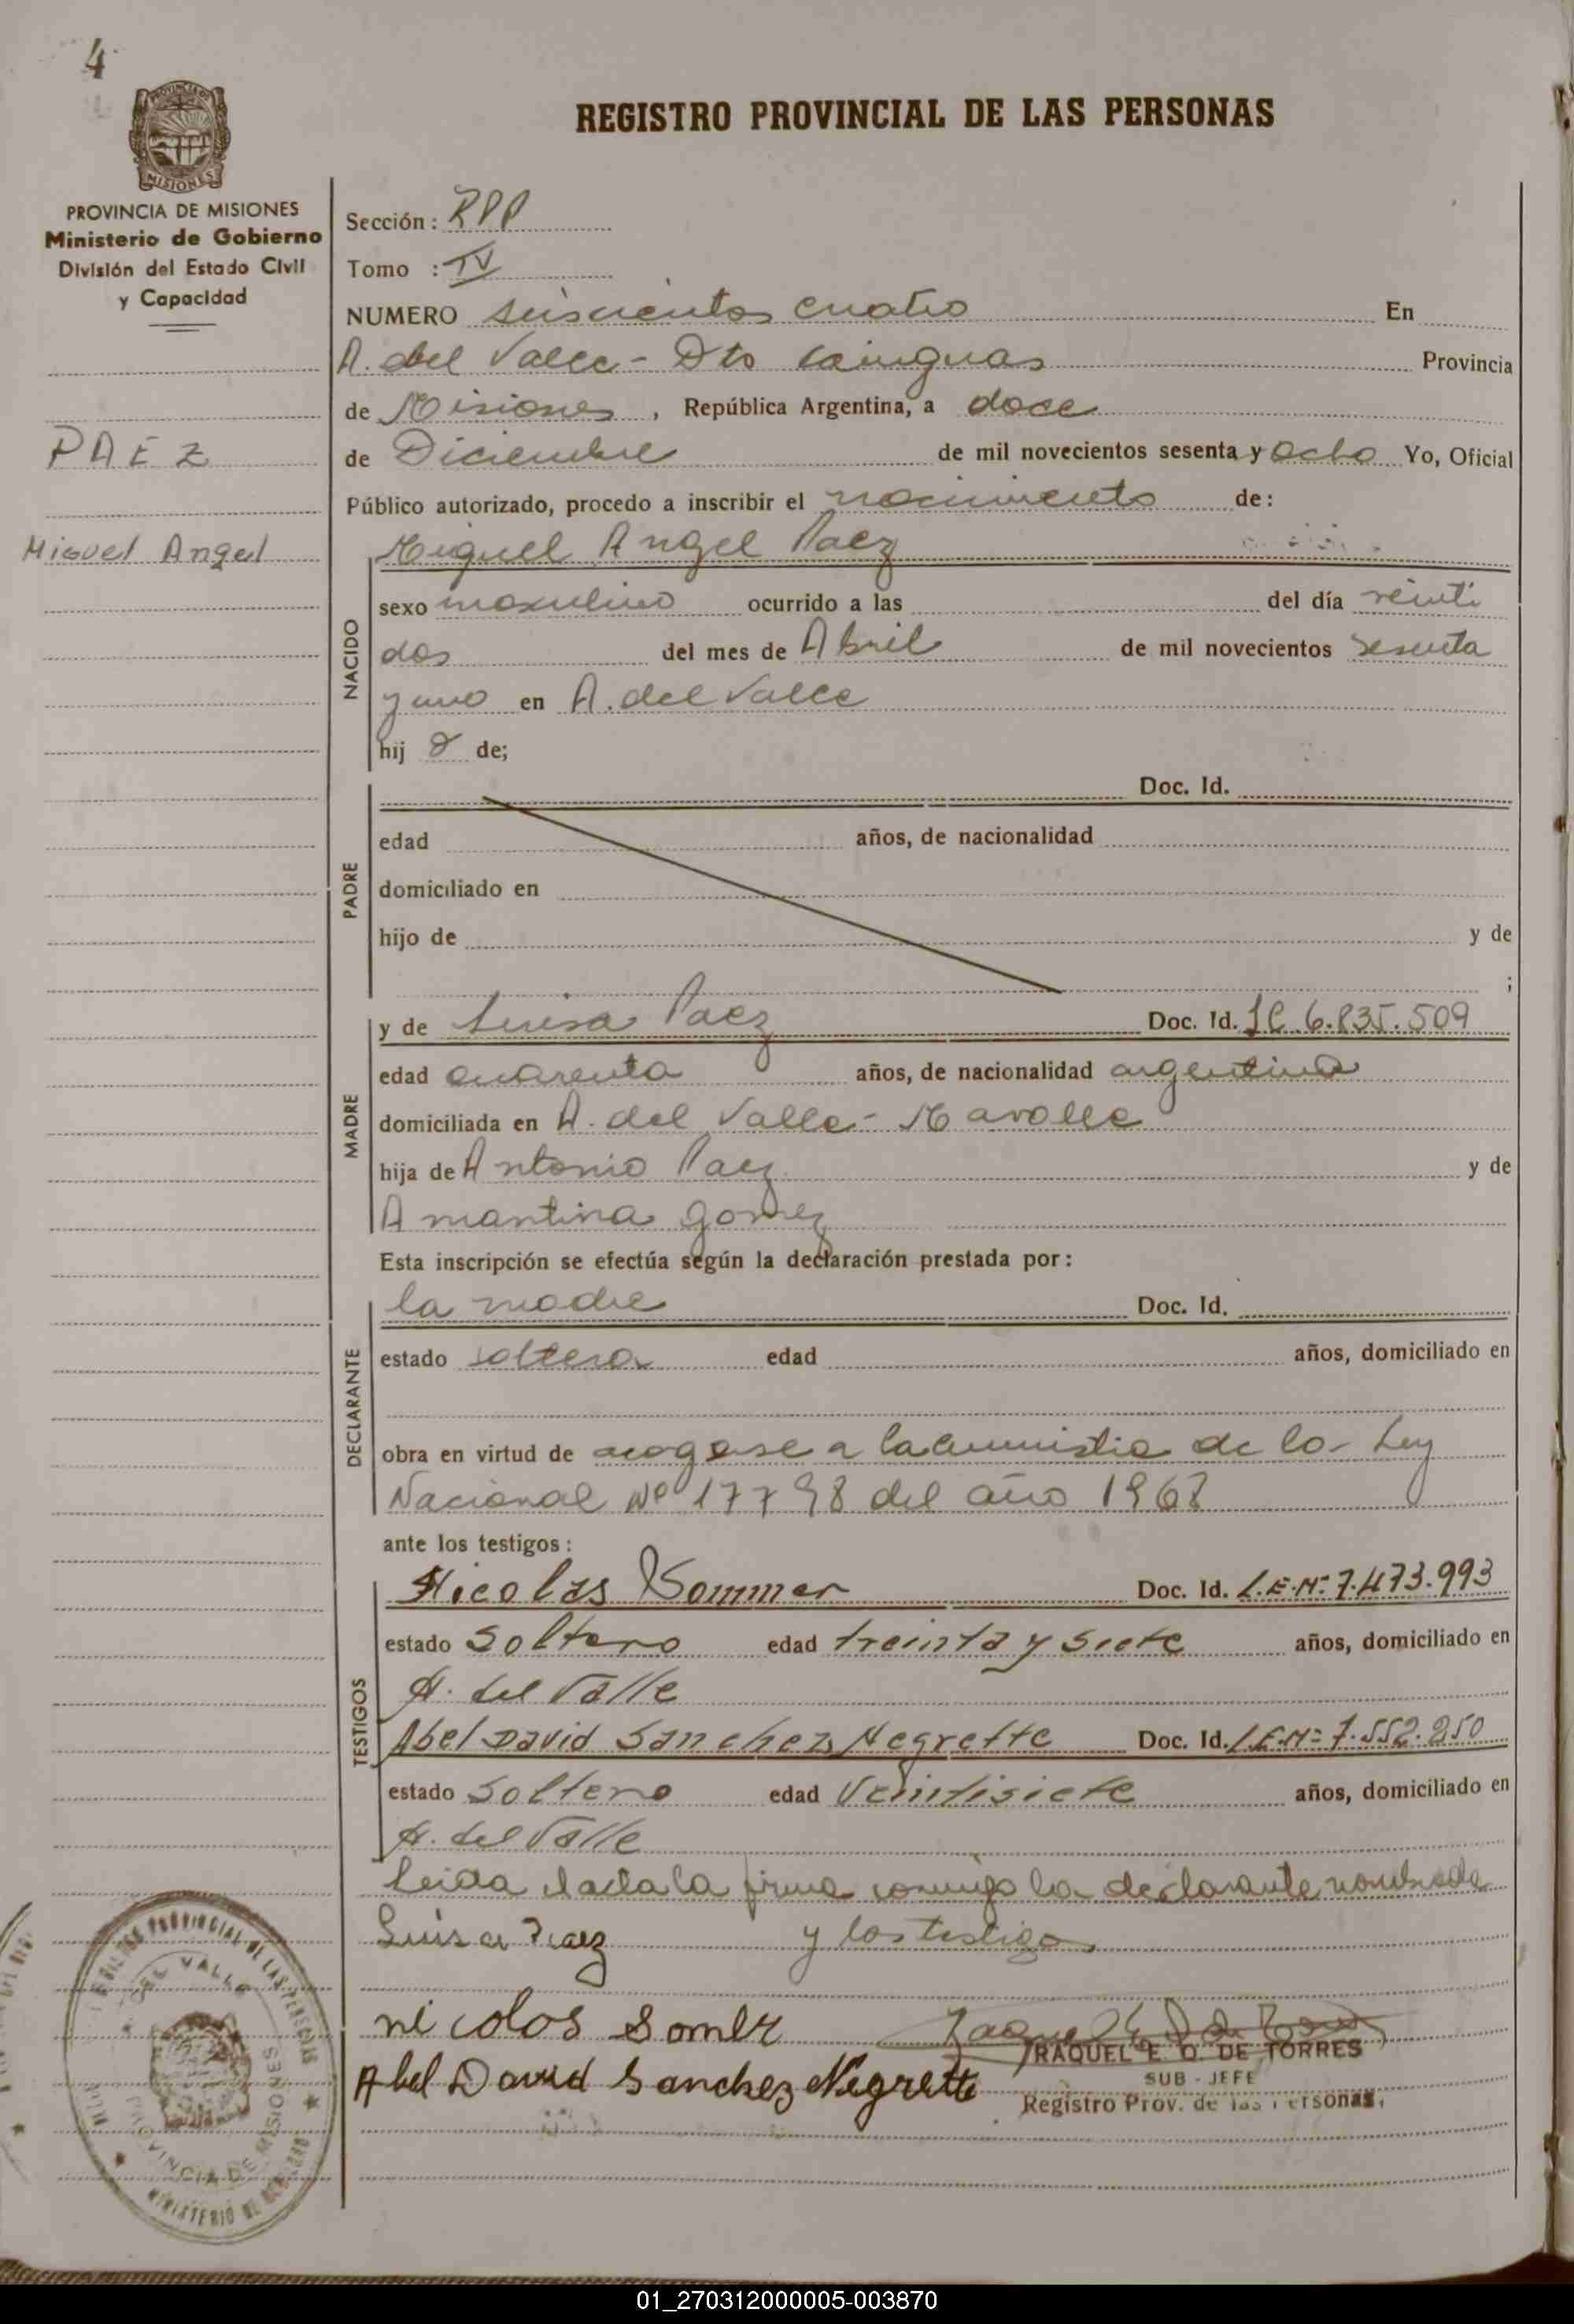 4
REGISTRO PROVINCIAL DE LAS PERSONAS
MISIONES
PROVINCIA DE MISIONES
Ministerio de Gobierno
División del Estado Civil
y Capacidad
PAEZ
Miguel Angel
Sección: RPP
Tomo : IV
NUMERO seiscientos cuatro En
A. del Valle - Dto Cainguas Provincia
de Misiones, República Argentina, a doce
de Diciembre de mil novecientos sesenta y ocho Yo, Oficial
Público autorizado, procedo a inscribir el nacimiento de:
NACIDO
Miguel Angel Paez
sexo masculino ocurrido a las del día veinti
dos del mes de Abril de mil novecientos sesenta
y uno en A. del Valle
hij o de;
PADRE
Doc. Id.
edad años, de nacionalidad
domiciliado en
hijo de y de
;
MADRE
y de Luisa Paez Doc. Id. LC 6.835.509
edad cuarenta años, de nacionalidad argentina
domiciliada en A. del Valle -
hija de Antonio Paez y de
Amantina Gomez
Esta inscripción se efectúa según la declaración prestada por:
DECLARANTE
la madre Doc. Id.
estado soltera edad años, domiciliado en
obra en virtud de acogerse a la amnistia de la Ley
Nacional Nº 17798 del año 1968
ante los testigos:
TESTIGOS
Nicolas Sommer Doc. Id. L.E.Nº 7.473.993
estado Soltero edad treinta y siete años, domiciliado en
A. del Valle
Abel David Sanchez Negrette Doc. Id. L.E.Nº 7.552.250
estado Soltero edad Veintisiete años, domiciliado en
A. del Valle
leida el acta la firma conmigo la declarante nombrada
Luisa Paez y los testigos
nicolos Somer
RAQUEL E. O. DE TORRES
SUB - JEFE
Abel David Sanchez Negrette
Registro Prov. de las Personas.
DEL VALLE
PROVINCIA DE MISIONES
01_270312000005-003870